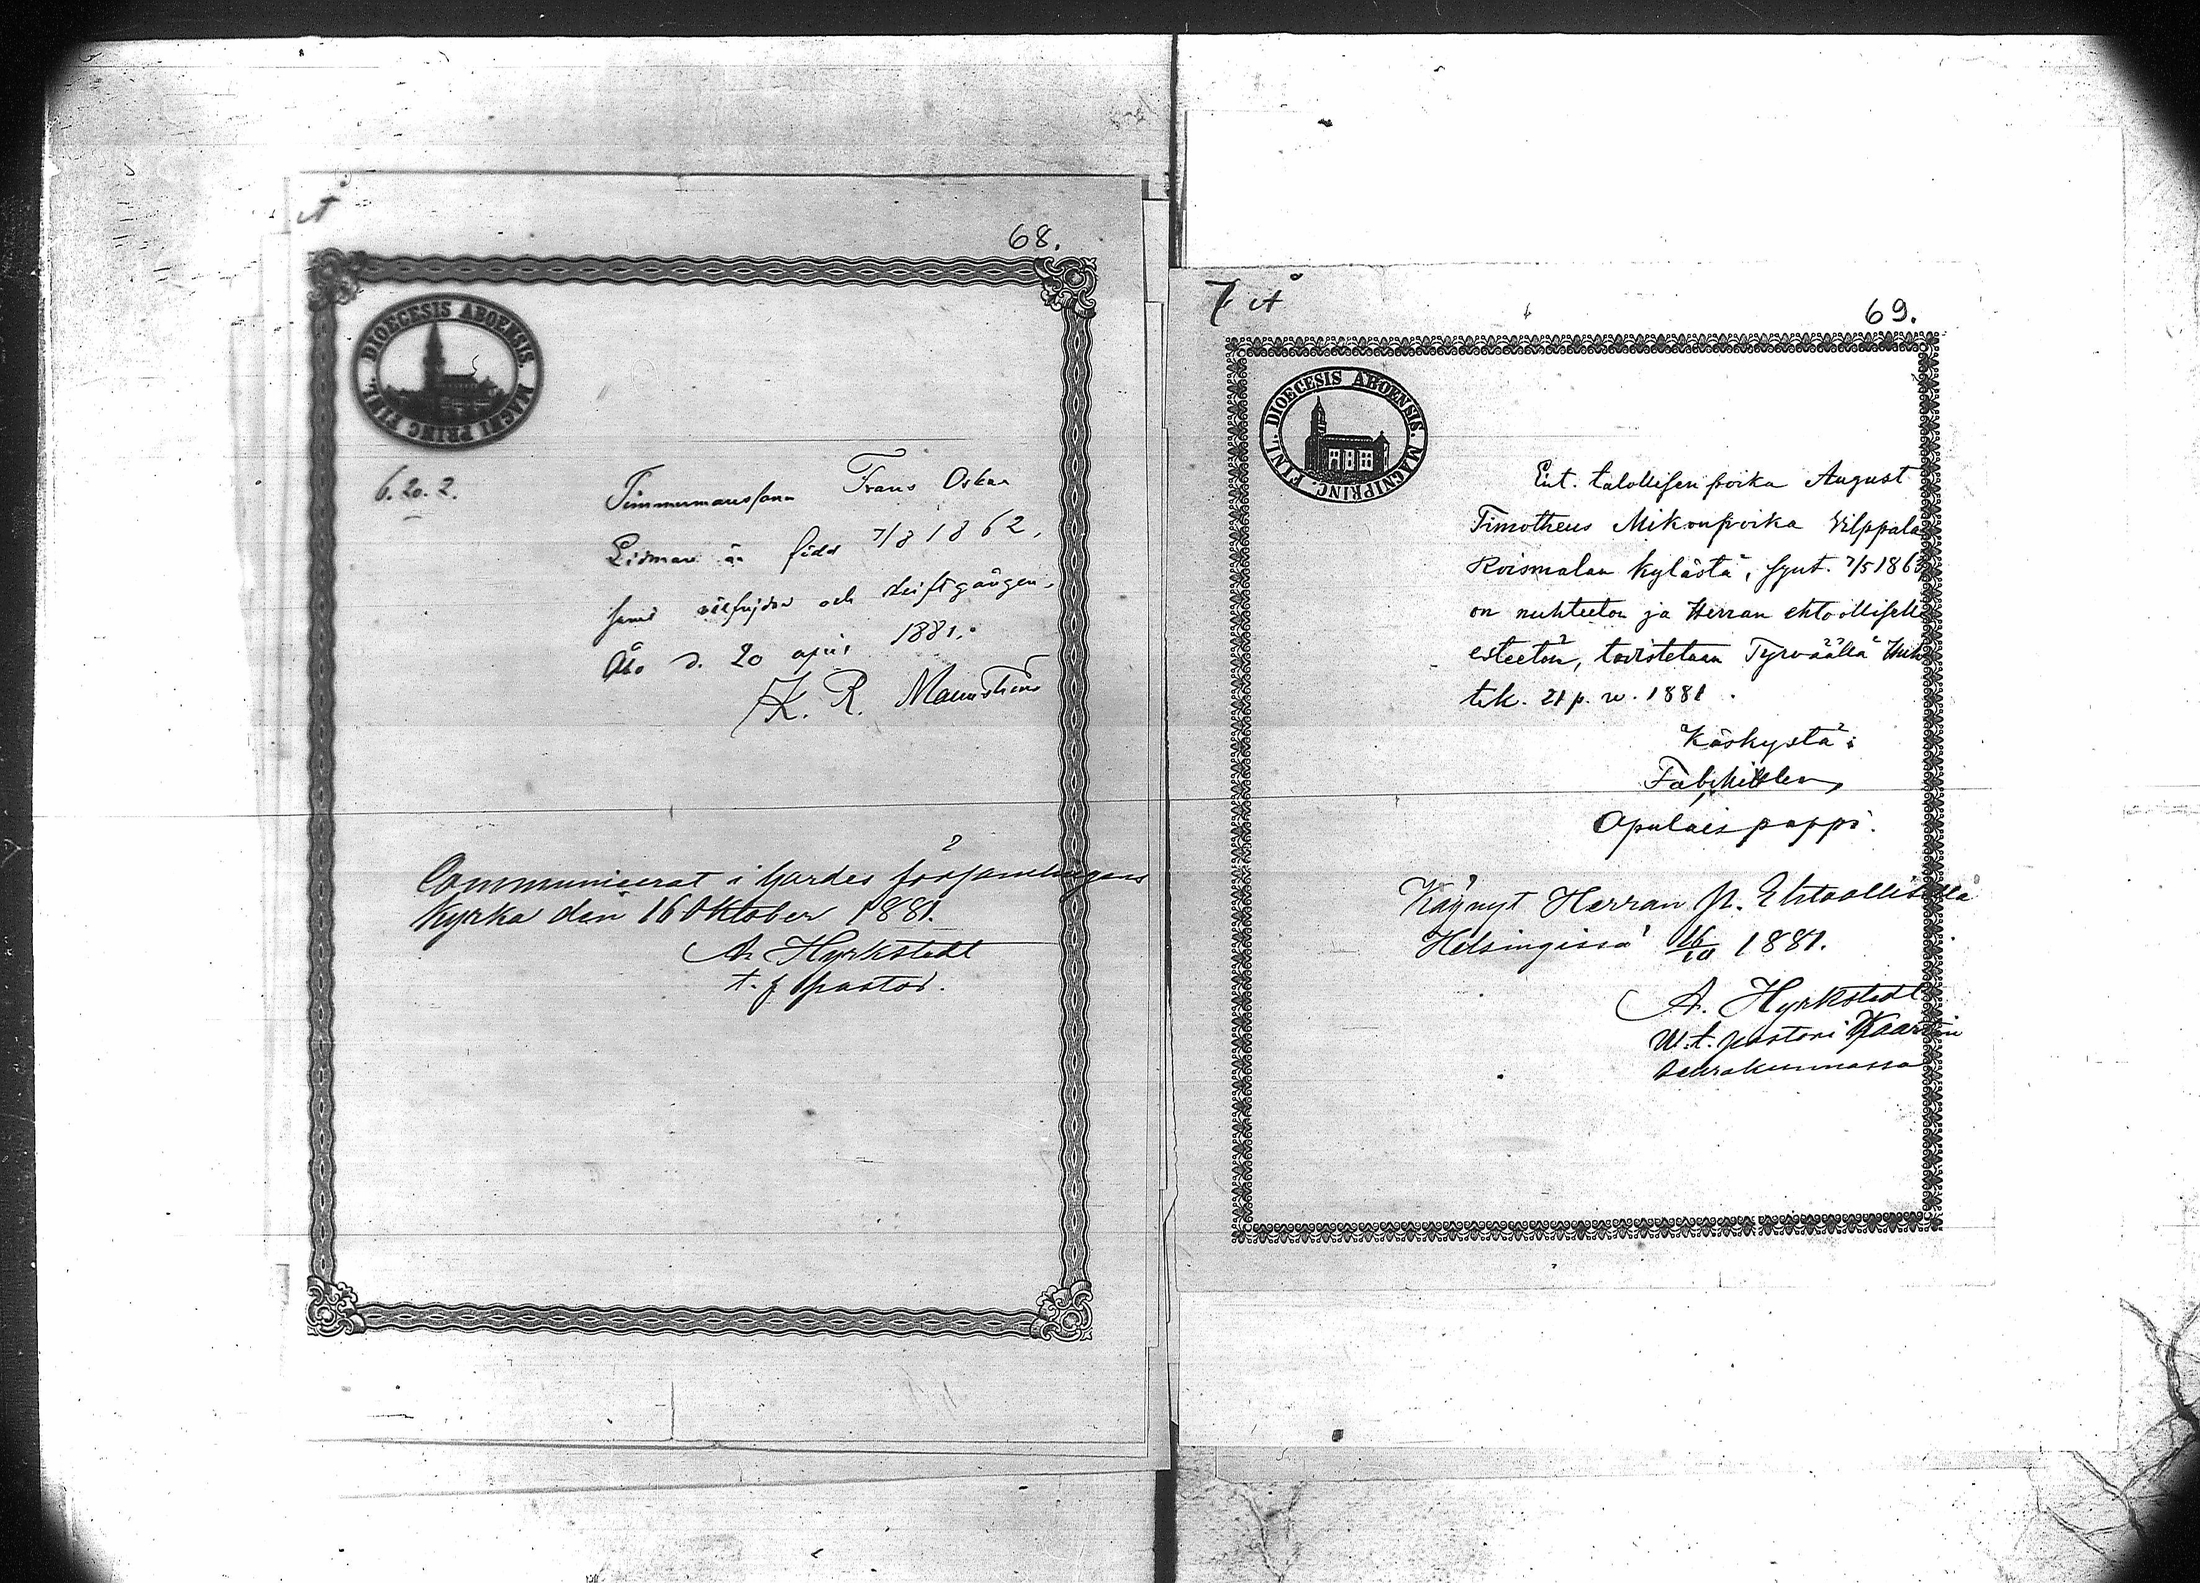 Å
68.
DIOECESIS ABOENSIS. MAGNI PRINC. FINL.
6. 20. 2.
Timmermanssonen Frans Oskar
Lidman är född 7/8 1862,
samt välfrejdad och skriftgången,
Åbo d. 20 april 1881.
K. R. Malmström
Communicerat i Gardes församlingens
kyrka den 16 Oktober 1881.
A. Hyrkstedt
t. f. pastor.
7 Å
69.
DIOECESIS ABOENSIS. MAGNI PRINC. FINL.
Ent. talollisen poika August
Timotheus Mikonpoika Vilppala
Roismalan kylästä, synt. 7/5 1863
on nuhteeton ja Herran ehtoolliselle
esteetön, todistetaan Tyrväällä Huh
tik. 21 p. w. 1881.
Käskystä:
Apulais pappi.
Käynyt Herran P. Ehtoollisella
Helsingissä 16/10 1881.
A. Hyrkstedt
W. t. pastori Kaartin
seurakunnassa